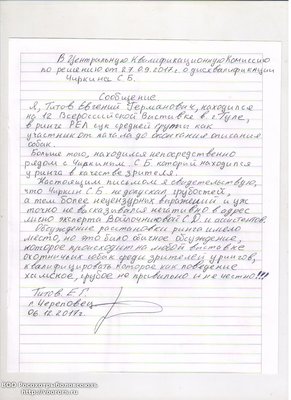 В Центральную Квалификационную Комиссию
по решению от 27.09.2017г. о дисквалификации
Чиркина С.Б.
Сообщение
Я, Титов Евгений Германович, находился
на 12 Всероссийской Выставке в г. Туле,
в ринге РЕЛ сук средней группы как
участник от начала до окончания описания
собак.
Больше того, находился непосредственно
рядом с Чиркиным С.Б. который находился
у ринга в качестве зрителя.
Настоящим письмом я свидетельствую,
что Чиркин С.Б. не допускал грубостей,
а тем более нецензурных выражений и уж
точно не высказывался негативно в адрес
эксперта Волочникова С.В. и ассистентов.
Обсуждение расстановки ринга имело
место, но это было обычное обсуждение,
которое происходит на любой выставке
охотничьих собак среди зрителей у рингов,
квалифицировать которое как поведение
хамское, грубое не правильно и не честно!!!
Титов. Е.Г.
г. Череповец
06.12.2017г.
ВОО Росохотрыболовсоюз
http://voorors.ru